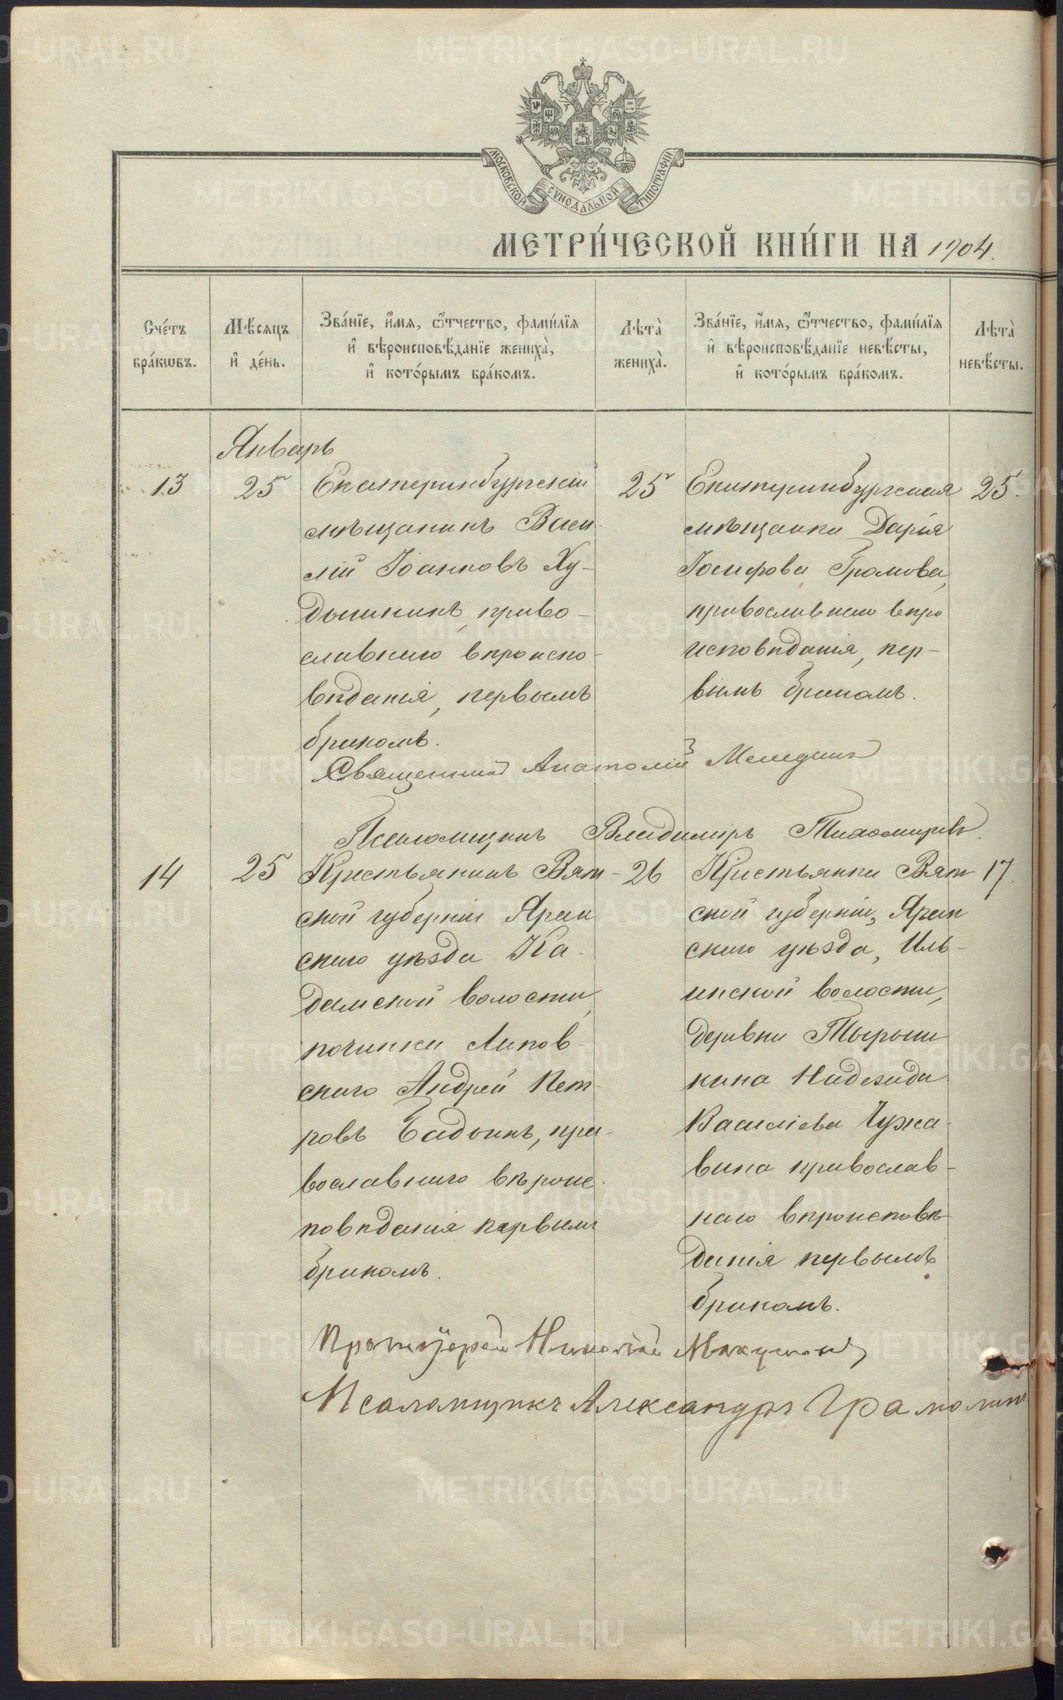 МОСКОВСКОЙ СѴНОДАЛЬНОЙ ТИПОГРАФІИ
МЕТРИ́ЧЕСКОЙ КНИ́ГИ НА 1904.
Сче́тъ бра́кѡвъ.
Мѣ́сѧцъ и҆ де́нь.
Зва́нїе, и҆́мѧ, ѻ҆́тчество, фами́лїѧ
и҆ вѣроисповѣ́данїе жениха̀,
и҆ кото́рымъ бра́комъ.
Лѣта̀ жениха̀.
Зва́нїе, и҆́мѧ, ѻ҆́тчество, фами́лїѧ
и҆ вѣроисповѣ́данїе невѣ́сты,
и҆ кото́рымъ бра́комъ.
Лѣта̀ невѣ́сты.
Январь
13
25
Екатеринбургскій
мѣщанинъ Васи
лій Іоанновъ Ху-
дышкинъ, право-
славнаго вѣроиспо-
вѣданія, первымъ
бракомъ.
25
Екатеринбургская
мѣщанка Дарія
Іосифова Громова,
православнаго вѣро
исповѣданія, пер-
вымъ бракомъ.
25.
Священникъ Анатолій
Псаломщикъ Владиміръ Тихомировъ.
14
25
Крестьянинъ Вят-
ской губерніи Яран
скаго уѣзда Ка-
дамской волости,
починка Липов-
скаго Андрей Пет-
ровъ Бадьинъ, пра-
вославнаго вѣроис-
повѣданія первымъ
бракомъ.
26
Крестьянка Вят
ской губерніи, Яран
скаго уѣзда, Иль-
инской волости,
деревни Тырыш
кина Надежда
Васильева Чужа-
вина православ-
наго вѣроисповѣ-
данія первымъ
бракомъ.
17.
Протоіерей Николай
Псаломщикъ Александръ Грамолинъ